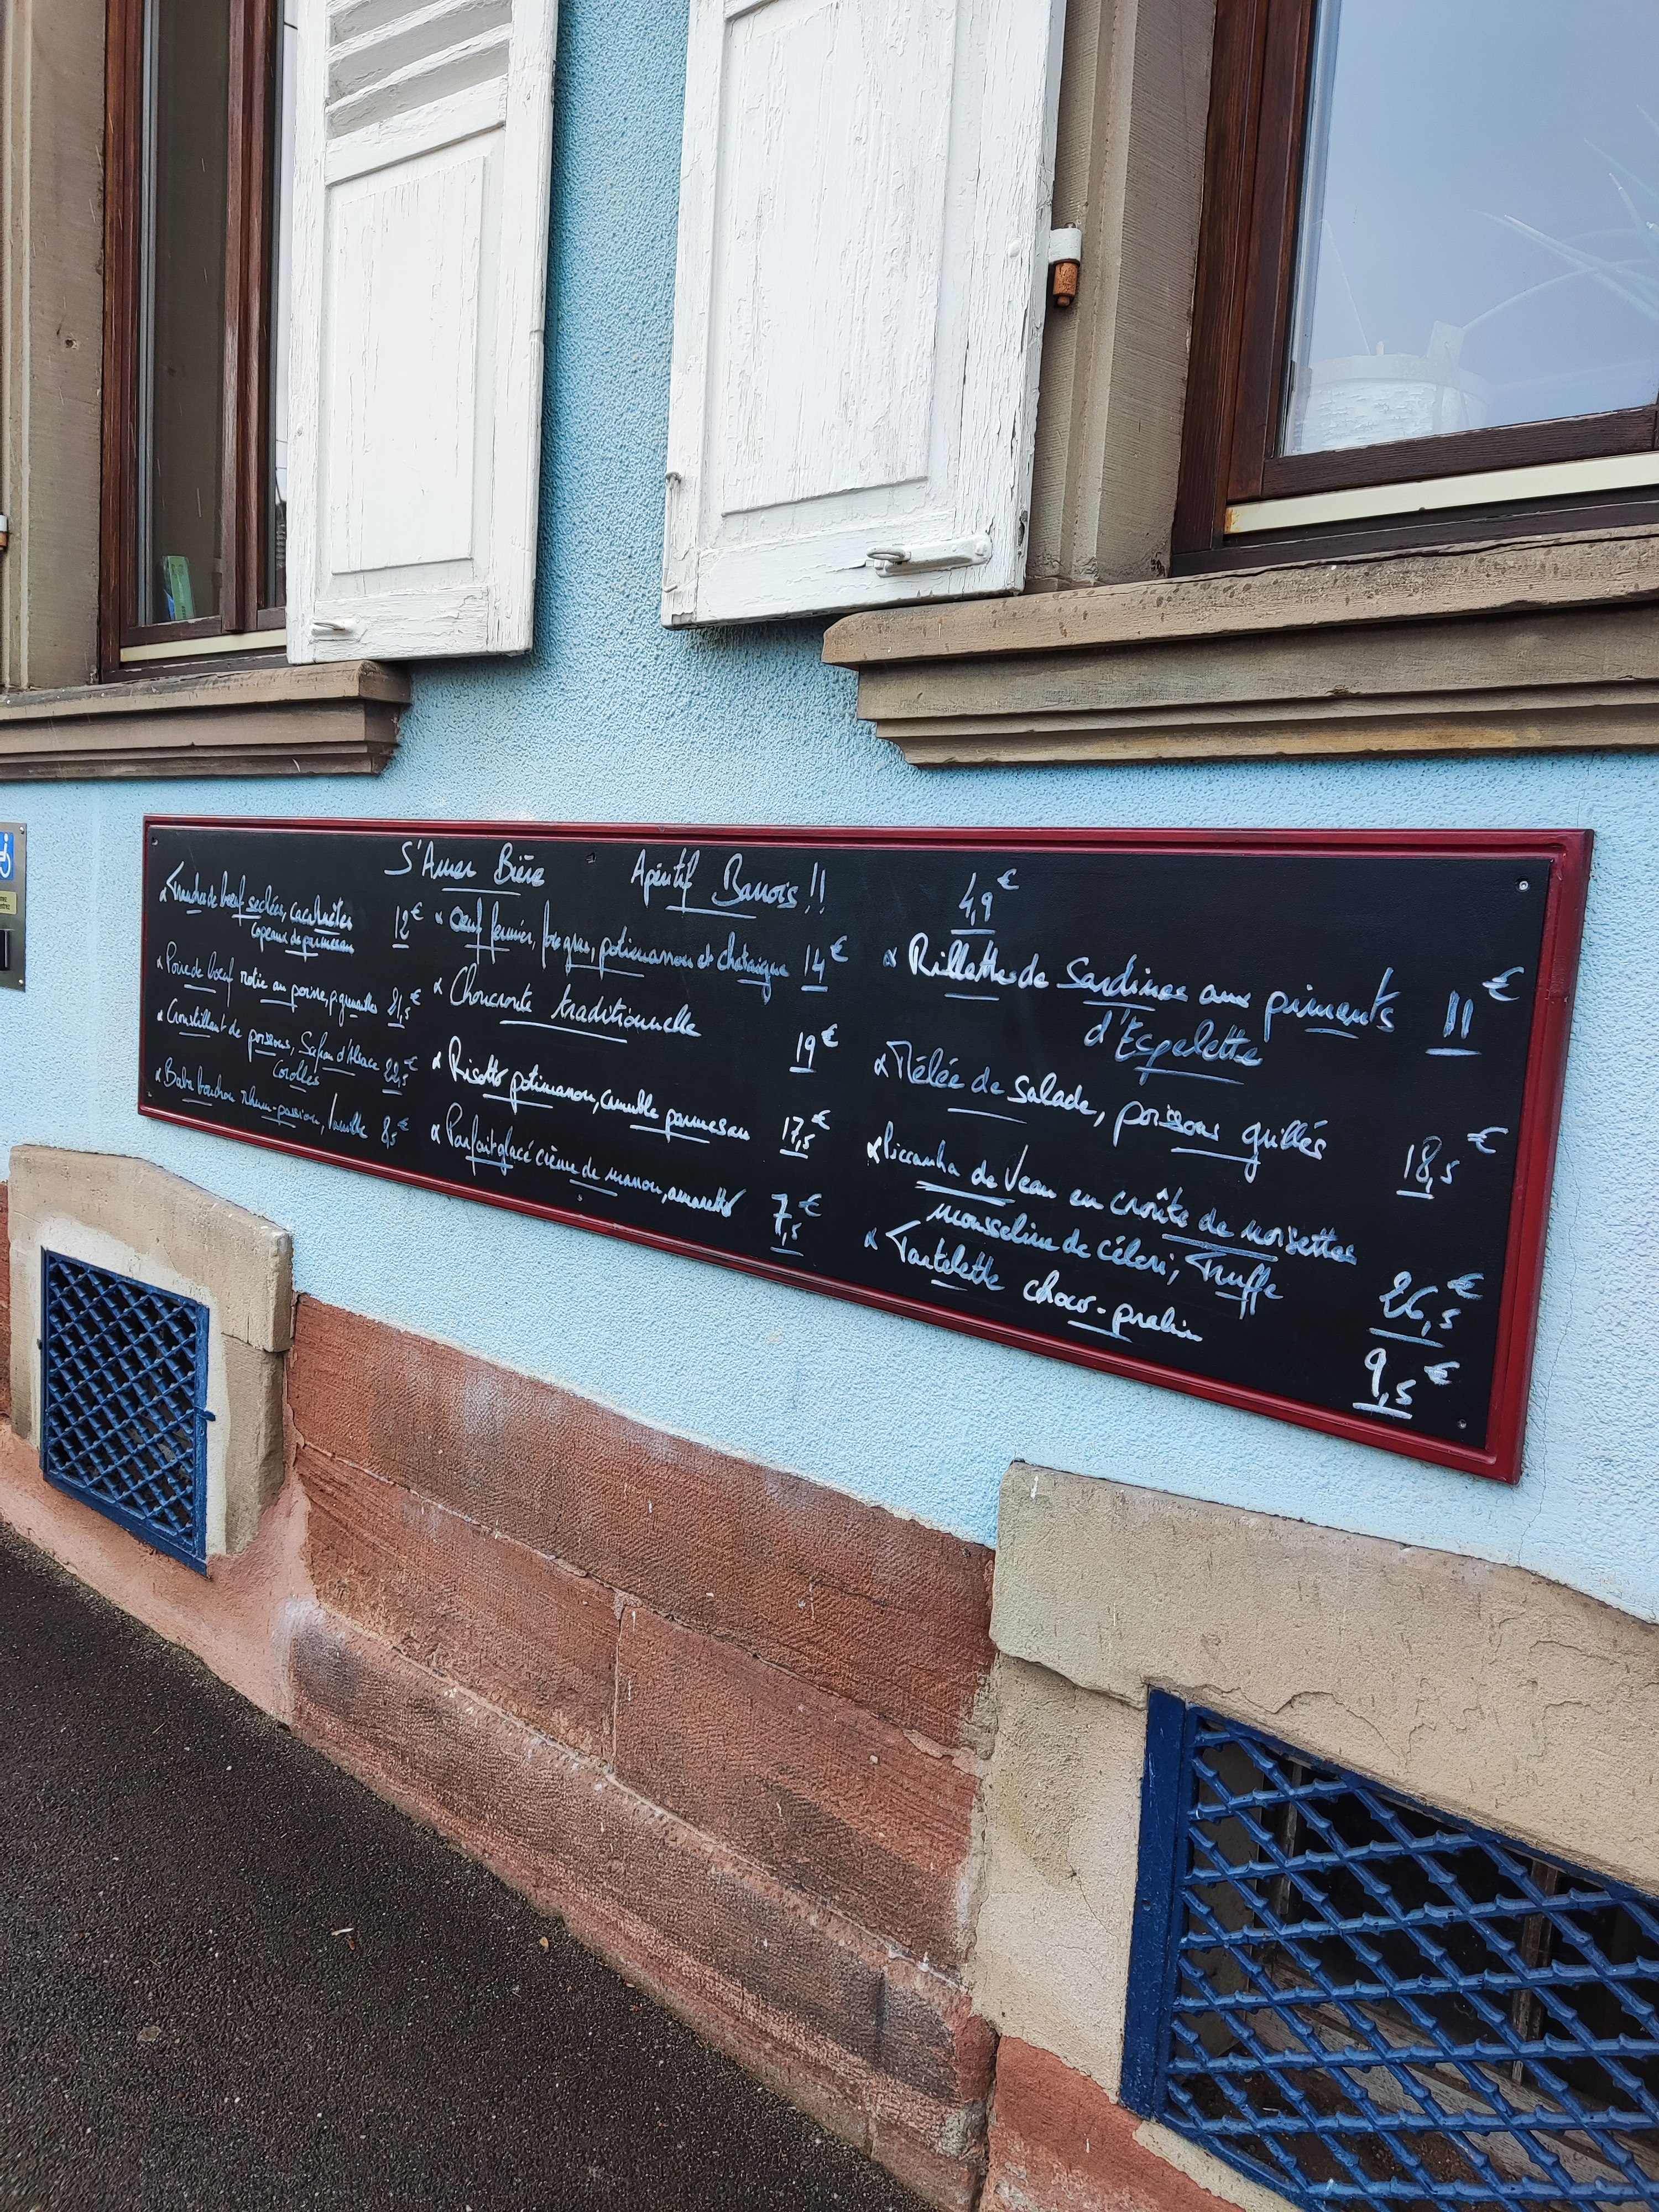 S'Amer Bière Apéritif Barrois!! 4,9€
Tendre de bœuf séchées, cacahuètes
copeaux de parmesan 12€
Poire de bœuf rotie au poivre, p. grenailles 21,5€
Croustillant de poissons, Safran d'Alsace
Corolles 22,5€
Baba bouchon rhum-passion, vanille 8,5€
Œuf fermier, foie gras, potimarron et chataigne 14€
Choucroute traditionnelle 19€
Risotto potimarron, crumble parmesan 17,5€
Parfait glacé crème de marron, amaretto 7,5€
Rillette de Sardines aux piments
d'Espelette 11€
Mêlée de salade, poissons grillés 18,5€
Piccanha de Veau en croûte de noisettes
mousseline de céleri, Truffe 26,5€
Tartelette choco-pralin 9,5€